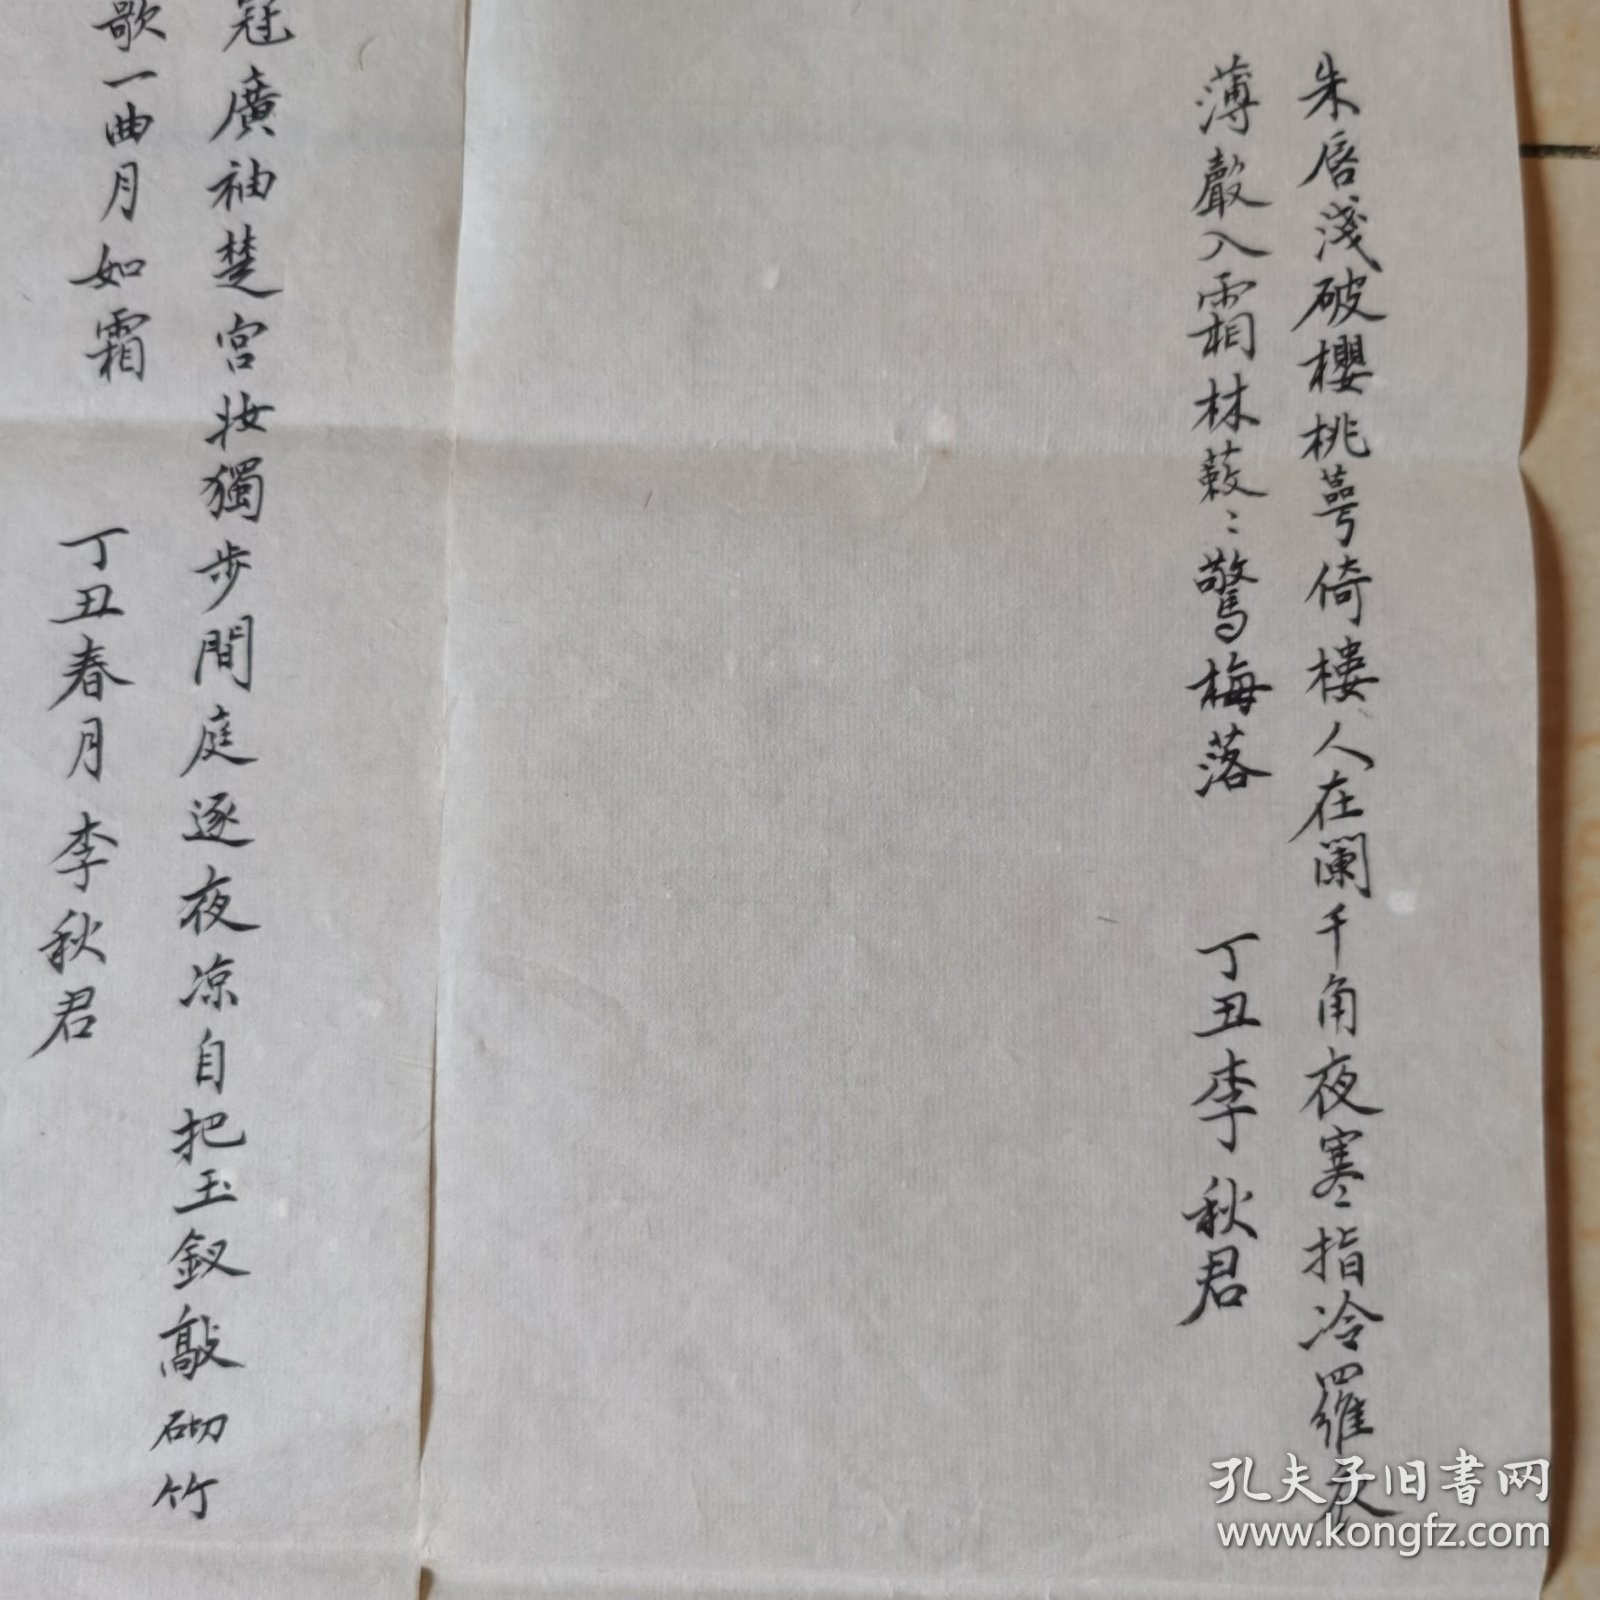 朱唇淺破櫻桃萼倚樓人在闌干角夜寒指冷羅衣
薄聲入霜林蔌〻驚梅落 丁丑李秋君
冠廣袖楚宮妝獨步閒庭逐夜凉自把玉釵敲砌竹
歌一曲月如霜 丁丑春月李秋君
孔夫子旧书网
www.kongfz.com